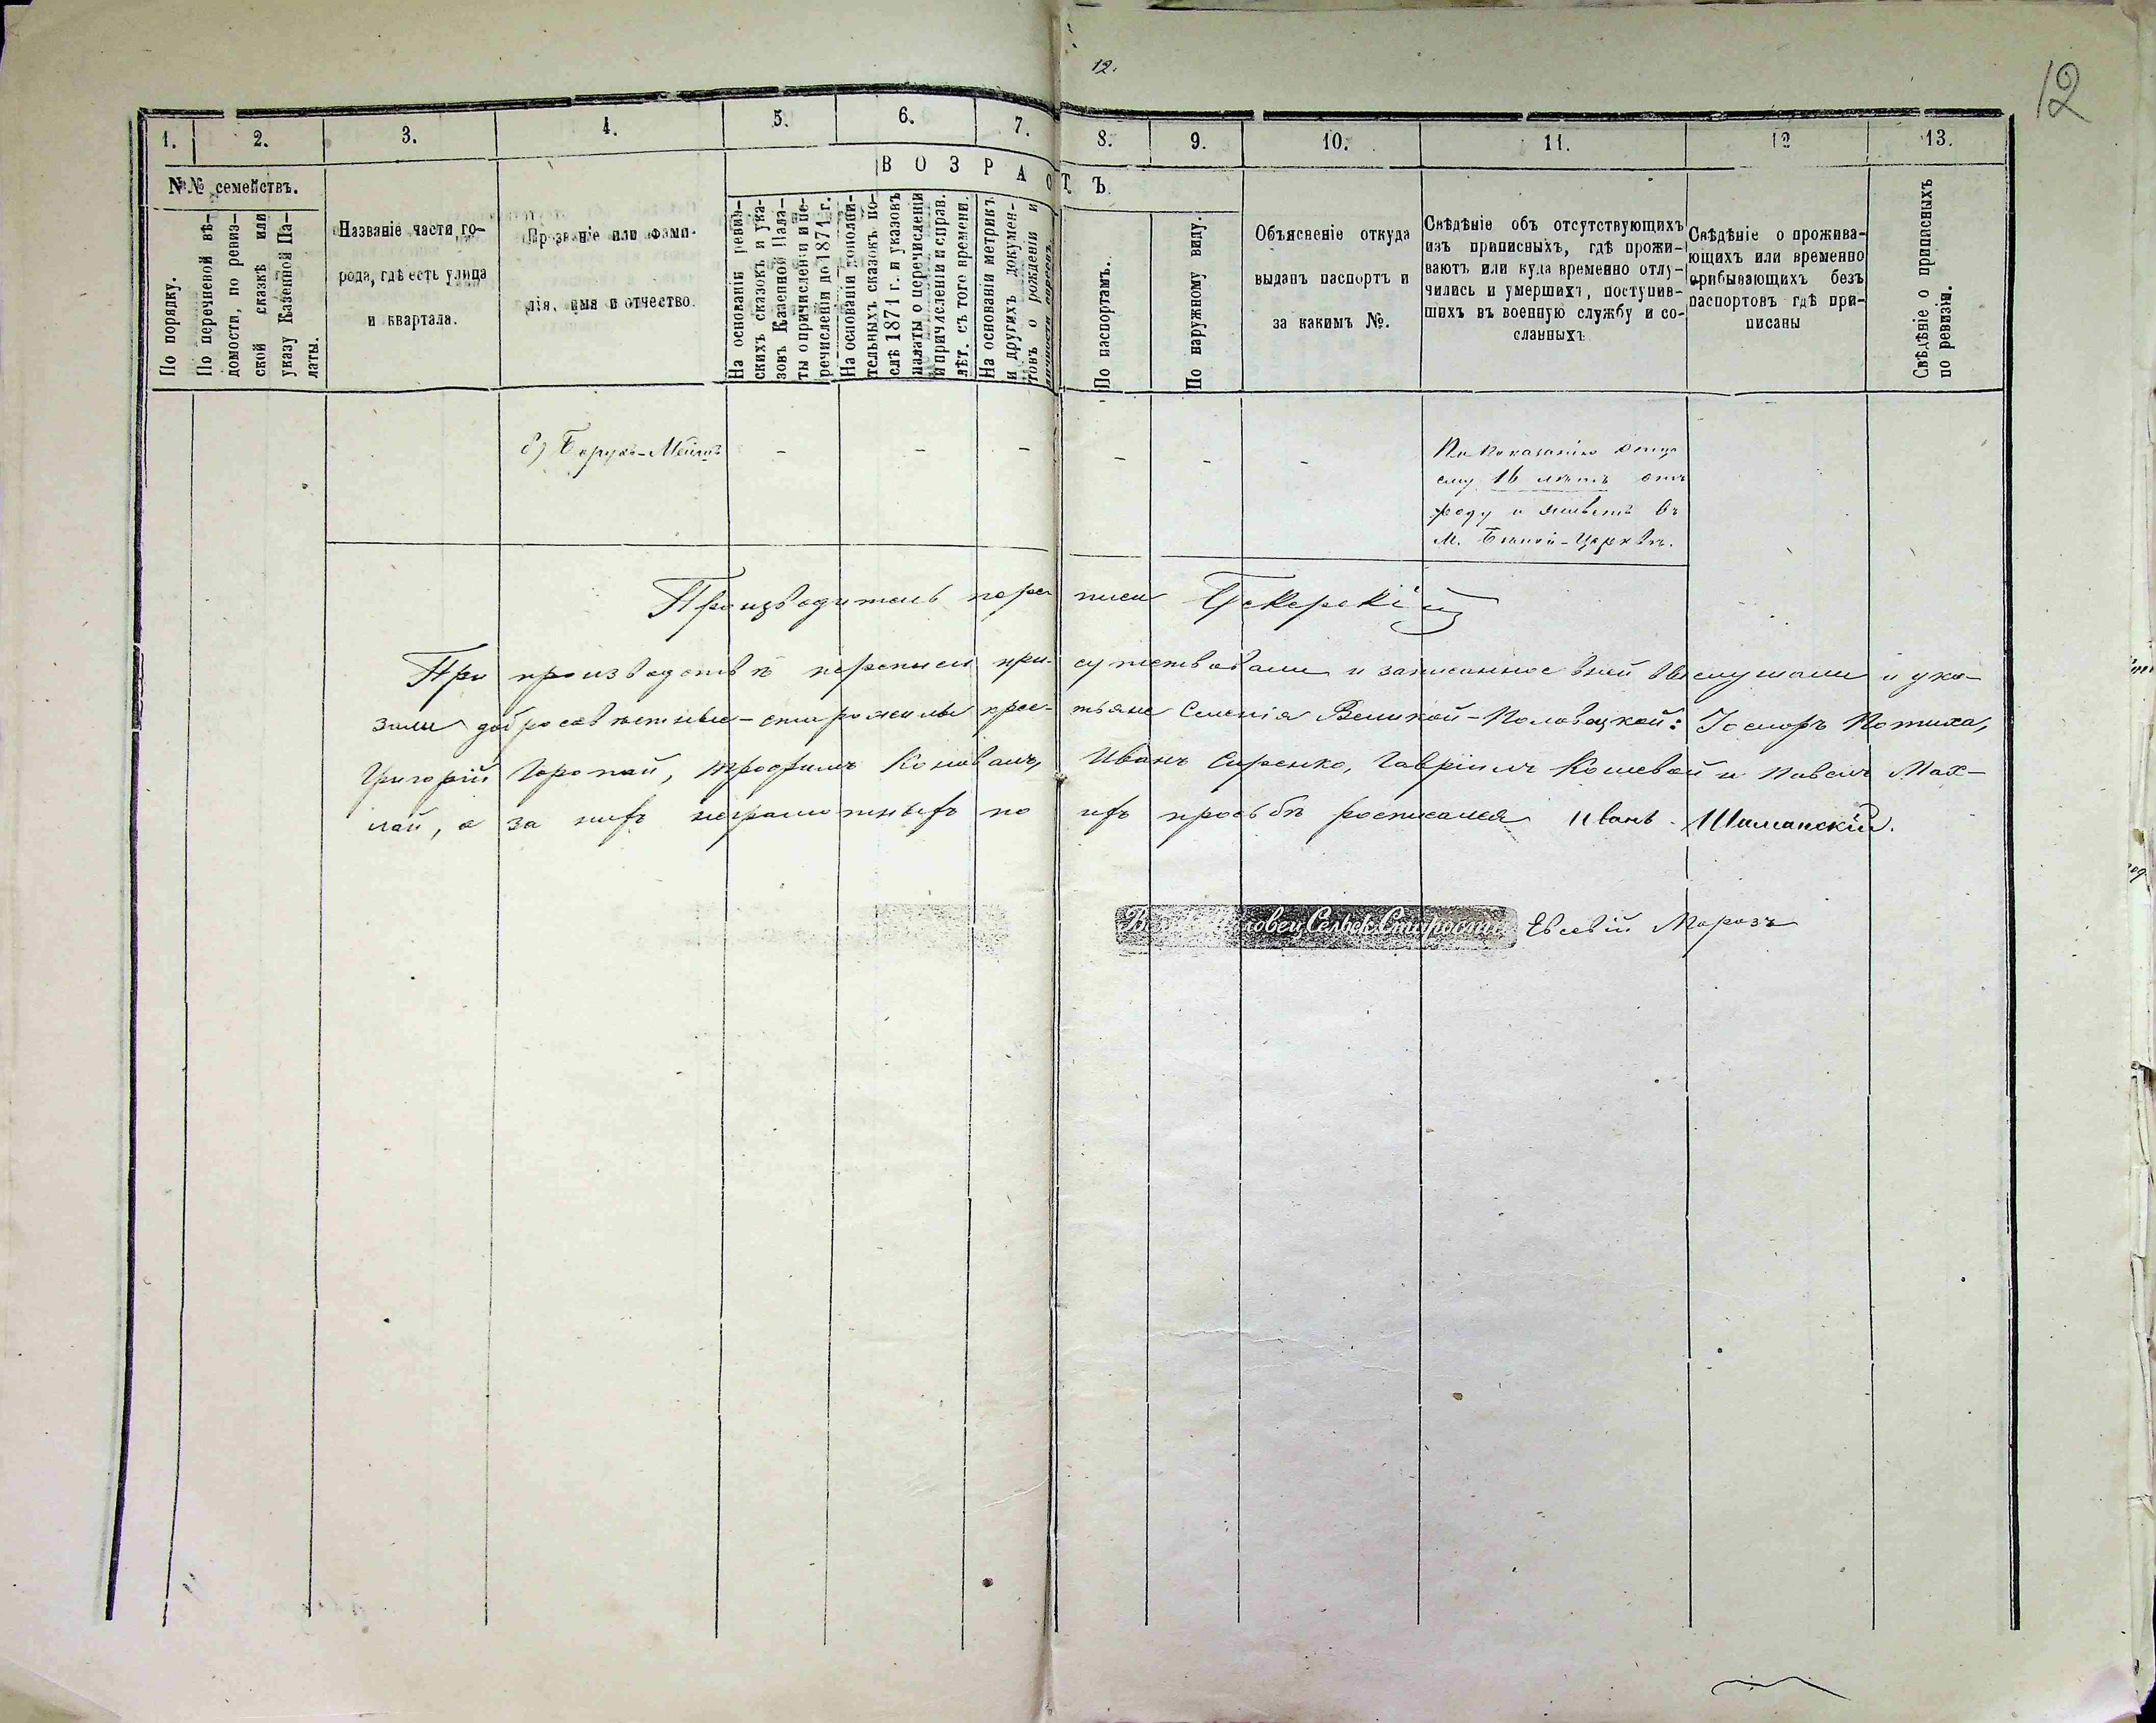 12.
12
1. 2. 3. 4. 5. 6. 7. 8. 9. 10. 11. 12 13.
ВОЗРАСТЪ
№№ семействъ.
По порядку.
По перечневой вѣ-
домости, по ревиз-
ской сказкѣ или
указу Казенной Па-
латы.
Названіе части го-
рода, гдѣ есть улица
и квартала.
Прозваніе или фами-
лія, имя и отчество.
На основаніи ревиз-
скихъ сказокъ и ука-
зовъ Казенной Пала-
ты о причисленіи и пе-
речисленіи до 1871 г.
На основаніи дополни-
тельныхъ сказокъ по-
слѣ 1871 г. и указовъ
палаты о перечисленіи
и причисленіи и справ.
лѣт. съ того времени.
На основаніи метрикъ
и другихъ докумен-
товъ о рожденіи и
По паспортамъ.
По наружному виду.
Объясненіе откуда
выданъ паспортъ и
за какимъ №.
Свѣдѣніе объ отсутствующихъ
изъ приписныхъ, гдѣ прожи-
ваютъ или куда временно отлу-
чились и умершихъ, поступив-
шихъ въ военную службу и со-
сланныхъ
Свѣдѣніе о прожива-
ющихъ или временно
прибывающихъ безъ
паспортовъ гдѣ при-
писаны
Свѣдѣніе о приписныхъ
по ревизіи.
Берухъ-Мейлихъ - - - - - -
По показанію отца
ему 16 лѣтъ отъ
роду и живетъ въ
М. Бѣлой-Церквѣ.
Производитель переписи
При производствѣ переписи при- сутствовали и записанное въ ней выслушали и ука-
зали добросовѣстные-старожилы крес- тьяне Селенія Великой-Половецкой: Іосифъ Потиха,
Григорій Горопай, Трофимъ Коновалъ, Иванъ Сиренко, Гавріилъ Кошевой и Павелъ Мах-
лай, а за нихъ неграмотныхъ по ихъ просьбѣ росписался Иванъ Шиманскій.
Сельск. Староста Евсевій Морозъ